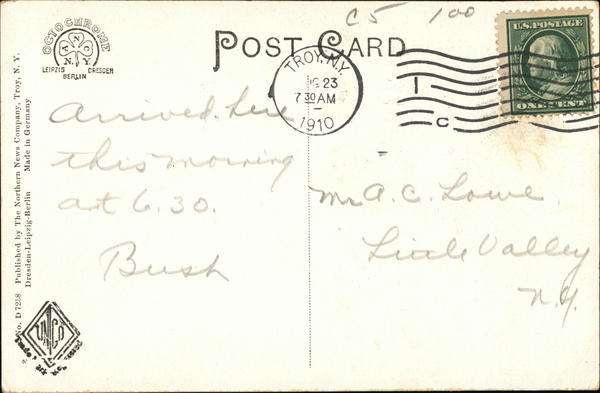 C5 100
OCTOCHROME
ANC
N.Y.
LEIPZIG DRESDEN
BERLIN
POST CARD
TROY, N.Y.
23
7 30 AM
1910
1
C
U.S. POSTAGE
ONE CENT
Arrived here
this morning
at 6.30.
Bush
Mr A. C. Lowe
Little Valley
N.Y.
No. D 7258 Published by The Northern News Company, Troy, N. Y.
Dresden-Leipzig-Berlin Made in Germany